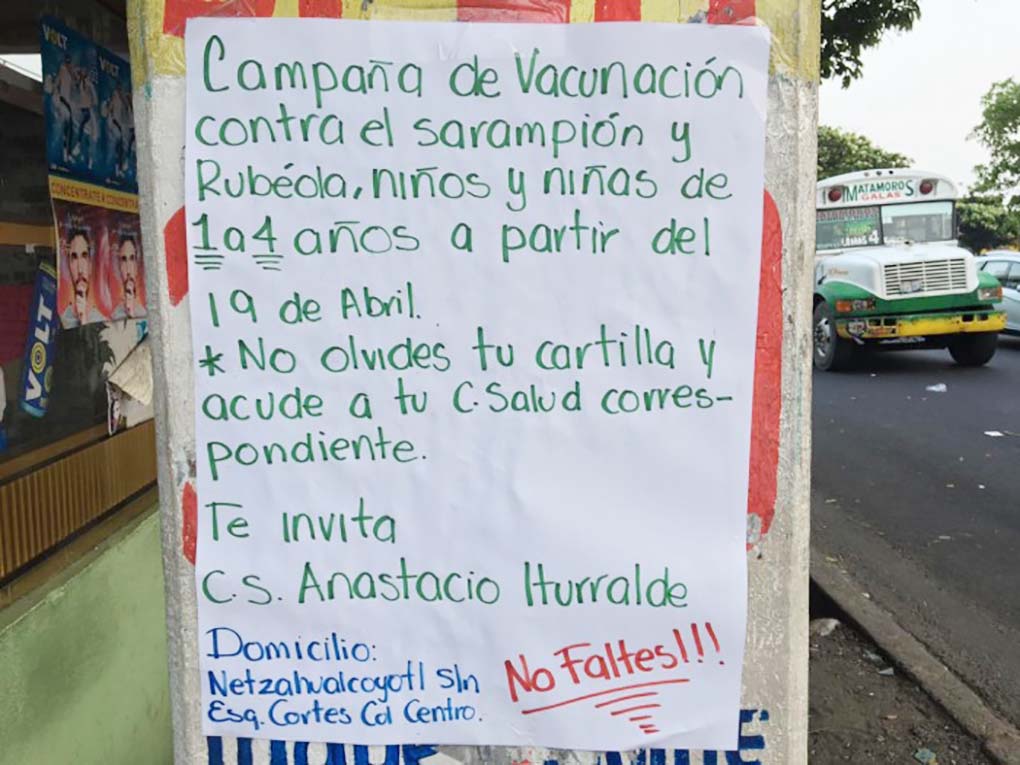 Campaña de Vacunación
contra el sarampión y
Rubéola, niños y niñas de
1 a 4 años a partir del
19 de Abril.
*No olvides tu cartilla y
acude a tu C.Salud corres-
pondiente.
Te invita
C.S. Anastacio Iturralde
Domicilio:
Netzahualcoyotl S/n
Esq. Cortes Col Centro.
No Faltes!!!
VOLT
VOLT
VOLT
MATAMOROS
GALAS